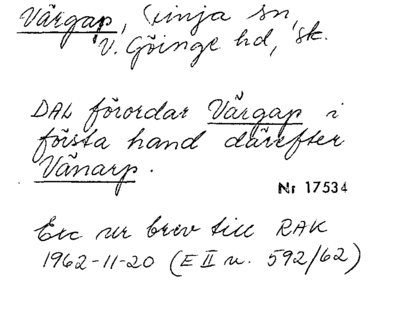 Värgap, Vinja sn,
V. Göinge hd, sk.
DAL förordar Värgap i
första hand därefter
Vänarp.
Nr 17534
Exc ur brev till RAK
1962-11-20 (E II u. 592/62)